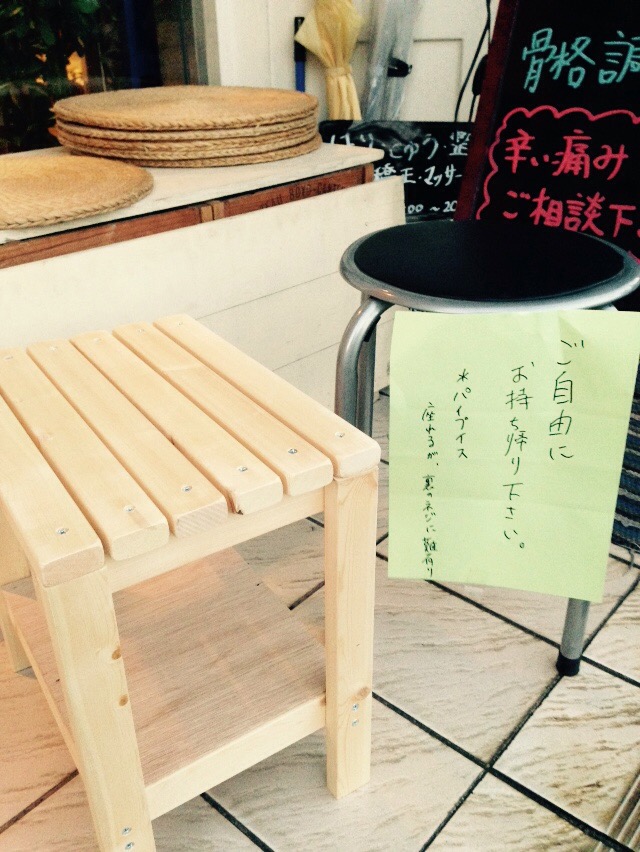 ご自由に
お持ち帰り下さい。
*パイプイス
座れるが、裏のネジに難有り
骨格調
辛い痛み
ご相談下
はり・きゅう・整
矯正・マッサー